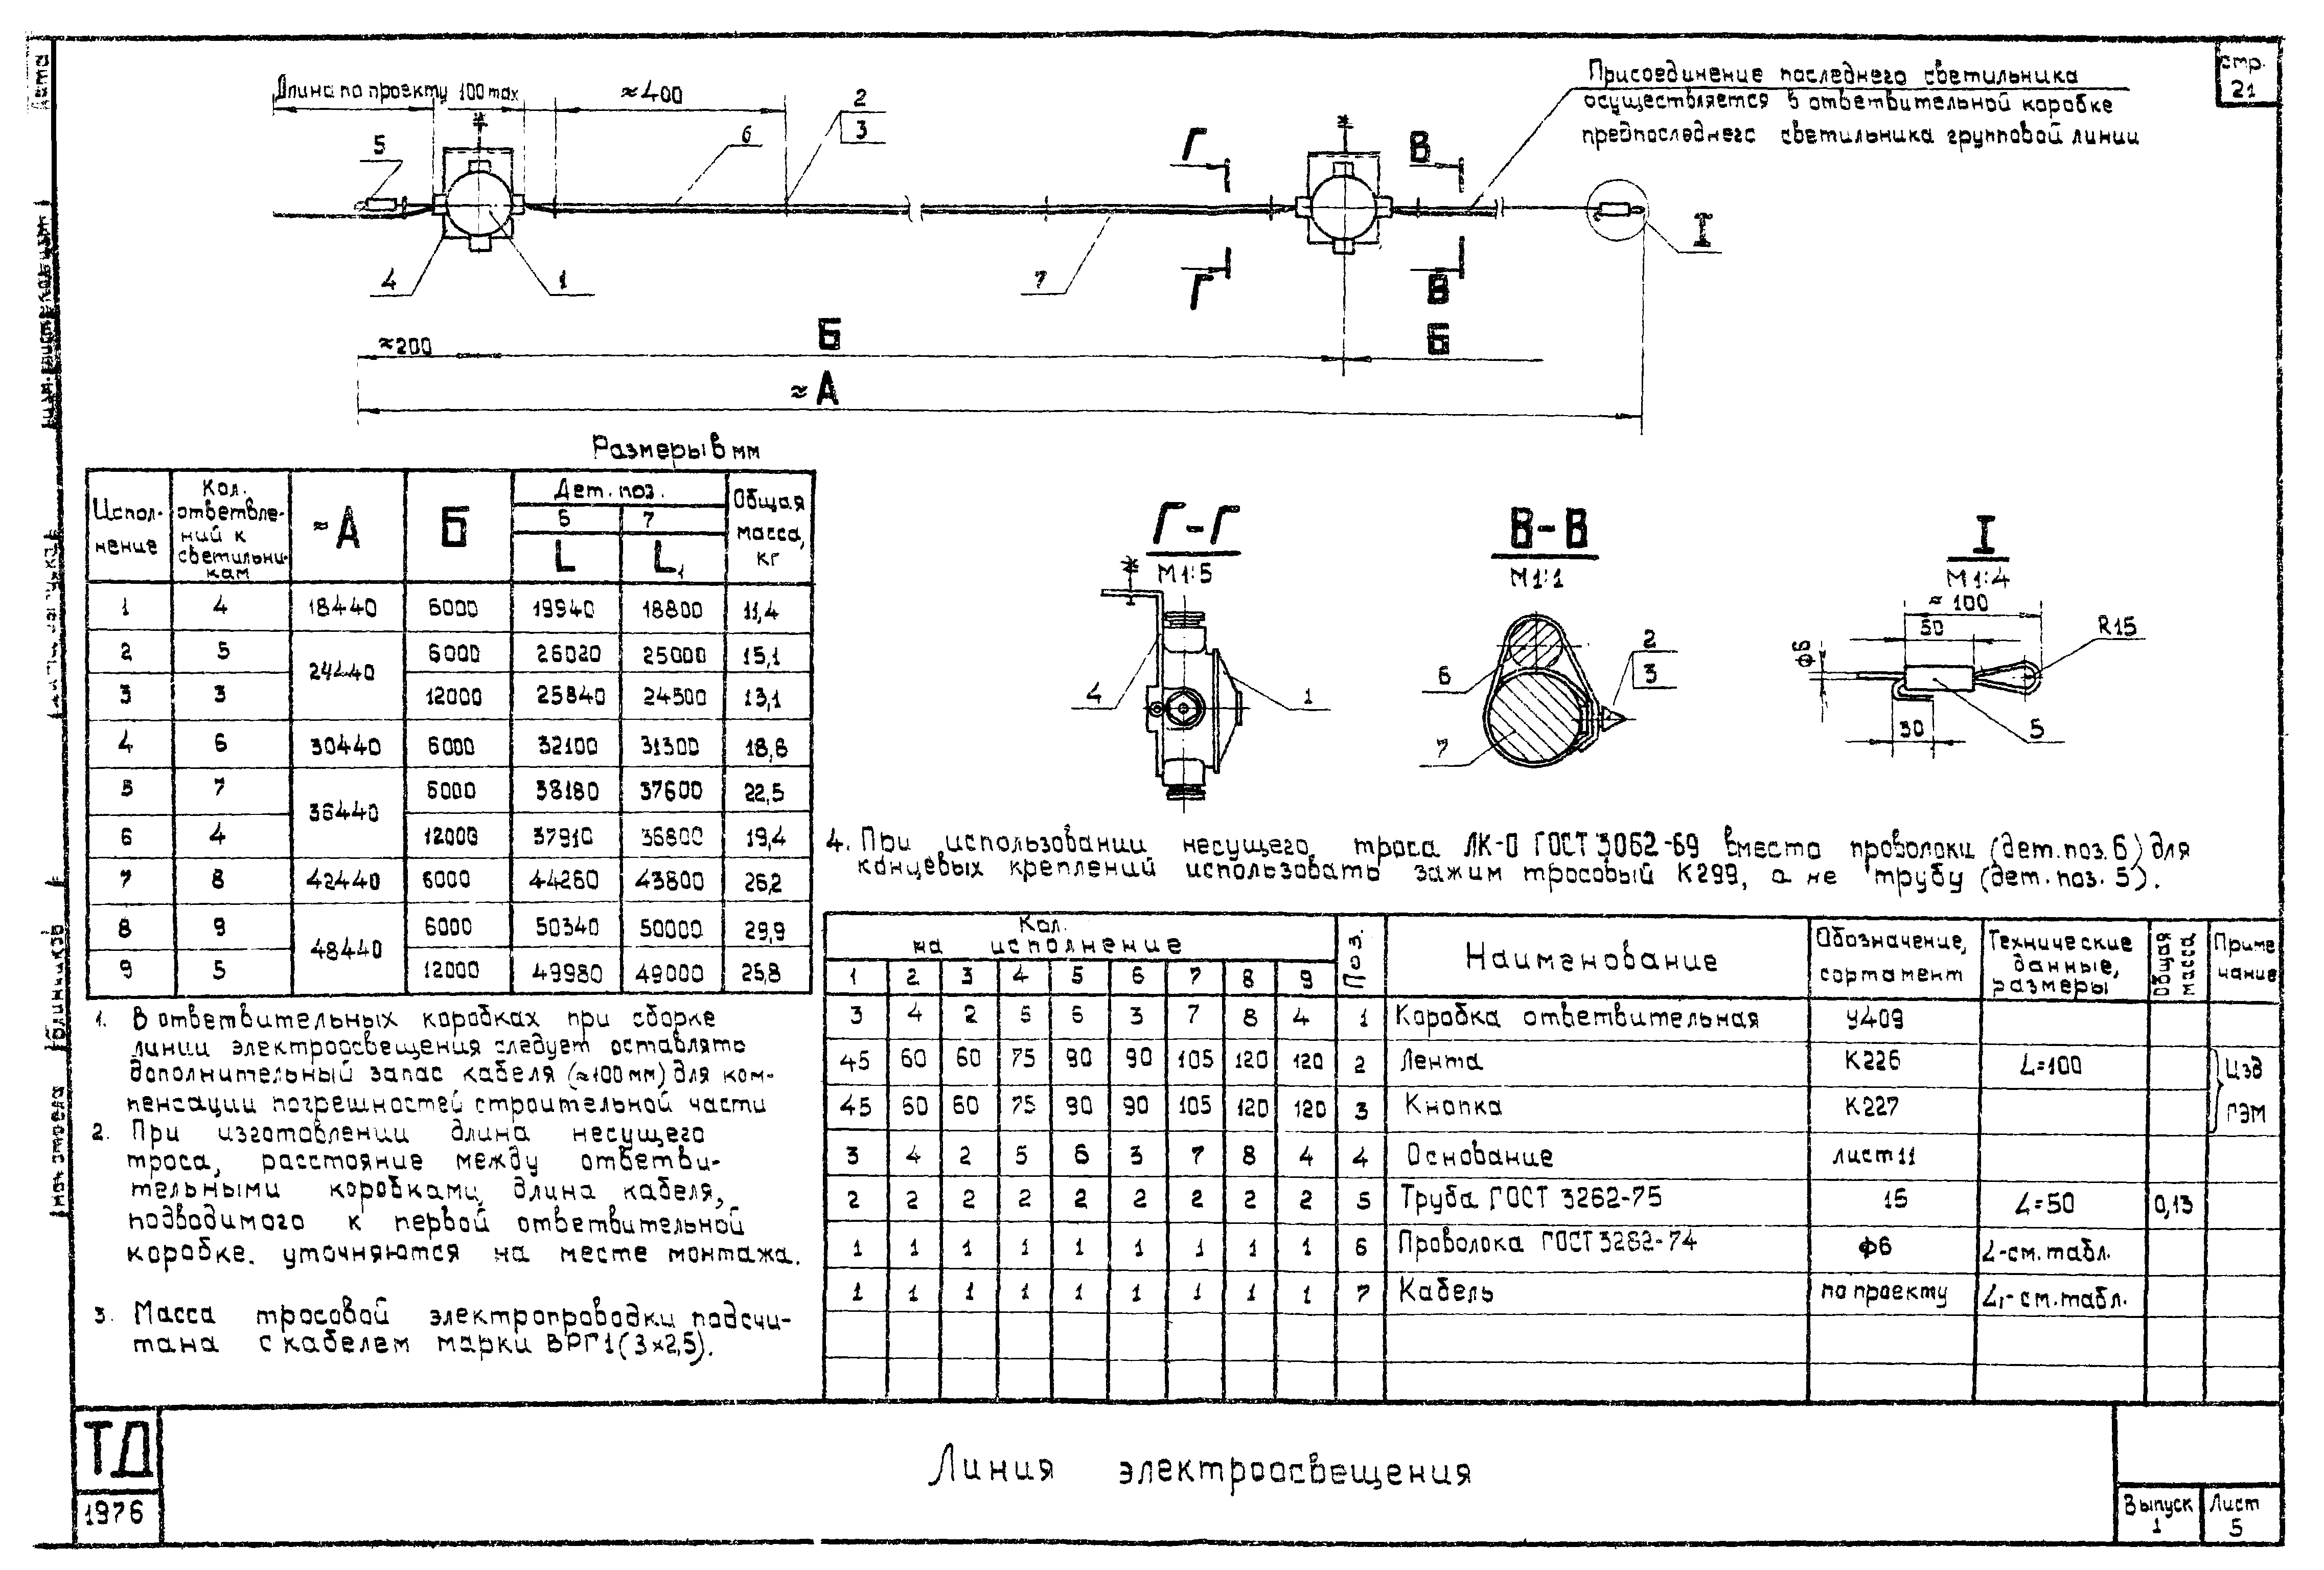 стр.
21
Длина по проекту
100 max
≈400
2
3
5
6
Г
В
Присоединение последнего светильника
осуществляется в ответвительной коробке
предпоследнего светильника групповой линии
I
4
1
7
Г
В
≈200
Б
Б
≈А
Размеры в мм
Испол-
нение
Кол.
ответвле-
ний к
светильни-
кам
≈А
Б
Дет. поз.
6 7
L L1
Общая
масса,
кг
1 4 18440 6000 19940 18800 11,4
2 5 24440 6000 26020 25000 15,1
3 3 12000 25840 24500 13,1
4 6 30440 6000 32100 31300 18,8
5 7 36440 6000 38180 37600 22,5
6 4 12000 37910 36800 19,4
7 8 42440 6000 44260 43800 26,2
8 9 48440 6000 50340 50000 29,9
9 5 12000 49980 49000 25,8
Г-Г
М1:5
4
1
В-В
М1:1
6
7
2
3
I
М1:4
≈100
50
R15
ф6
30
5
1. В ответвительных коробках при сборке
линии электроосвещения следует оставлять
дополнительный запас кабеля (≈100мм) для ком-
пенсации погрешностей строительной части
2. При изготовлении длина несущего
троса, расстояние между ответви-
тельными коробками, длина кабеля,
подводимого к первой ответвительной
коробке. уточняются на месте монтажа.
3. Масса тросовой электропроводки подсчи-
тана с кабелем марки ВРГ1(3×2,5).
4. При использовании несущего троса ЛК-О ГОСТ 3062-69 вместо проволоки (дет.поз.6) для
концевых креплений использовать зажим тросовый К299, а не трубу (дет.поз. 5).
Кол.
на исполнение
1 2 3 4 5 6 7 8 9
Поз.
Наименование
Обозначение,
сортамент
Технические
данные,
размеры
Общая
масса
Приме
чание
3 4 2 5 6 3 7 8 4 1 Коробка ответвительная У409
45 60 60 75 90 90 105 120 120 2 Лента К226 L=100
Изд
45 60 60 75 90 90 105 120 120 3 Кнопка К227
ГЭМ
3 4 2 5 6 3 7 8 4 4 Основание лист 11
2 2 2 2 2 2 2 2 2 5 Труба ГОСТ 3262-75 15 L=50 0,13
1 1 1 1 1 1 1 1 1 6 Проволока ГОСТ 3282-74 ф6 L-см.табл.
1 1 1 1 1 1 1 1 1 7 Кабель по проекту L1-см.табл.
ТД
1976
Линия электроосвещения
Выпуск
1
Лист
5
Дата